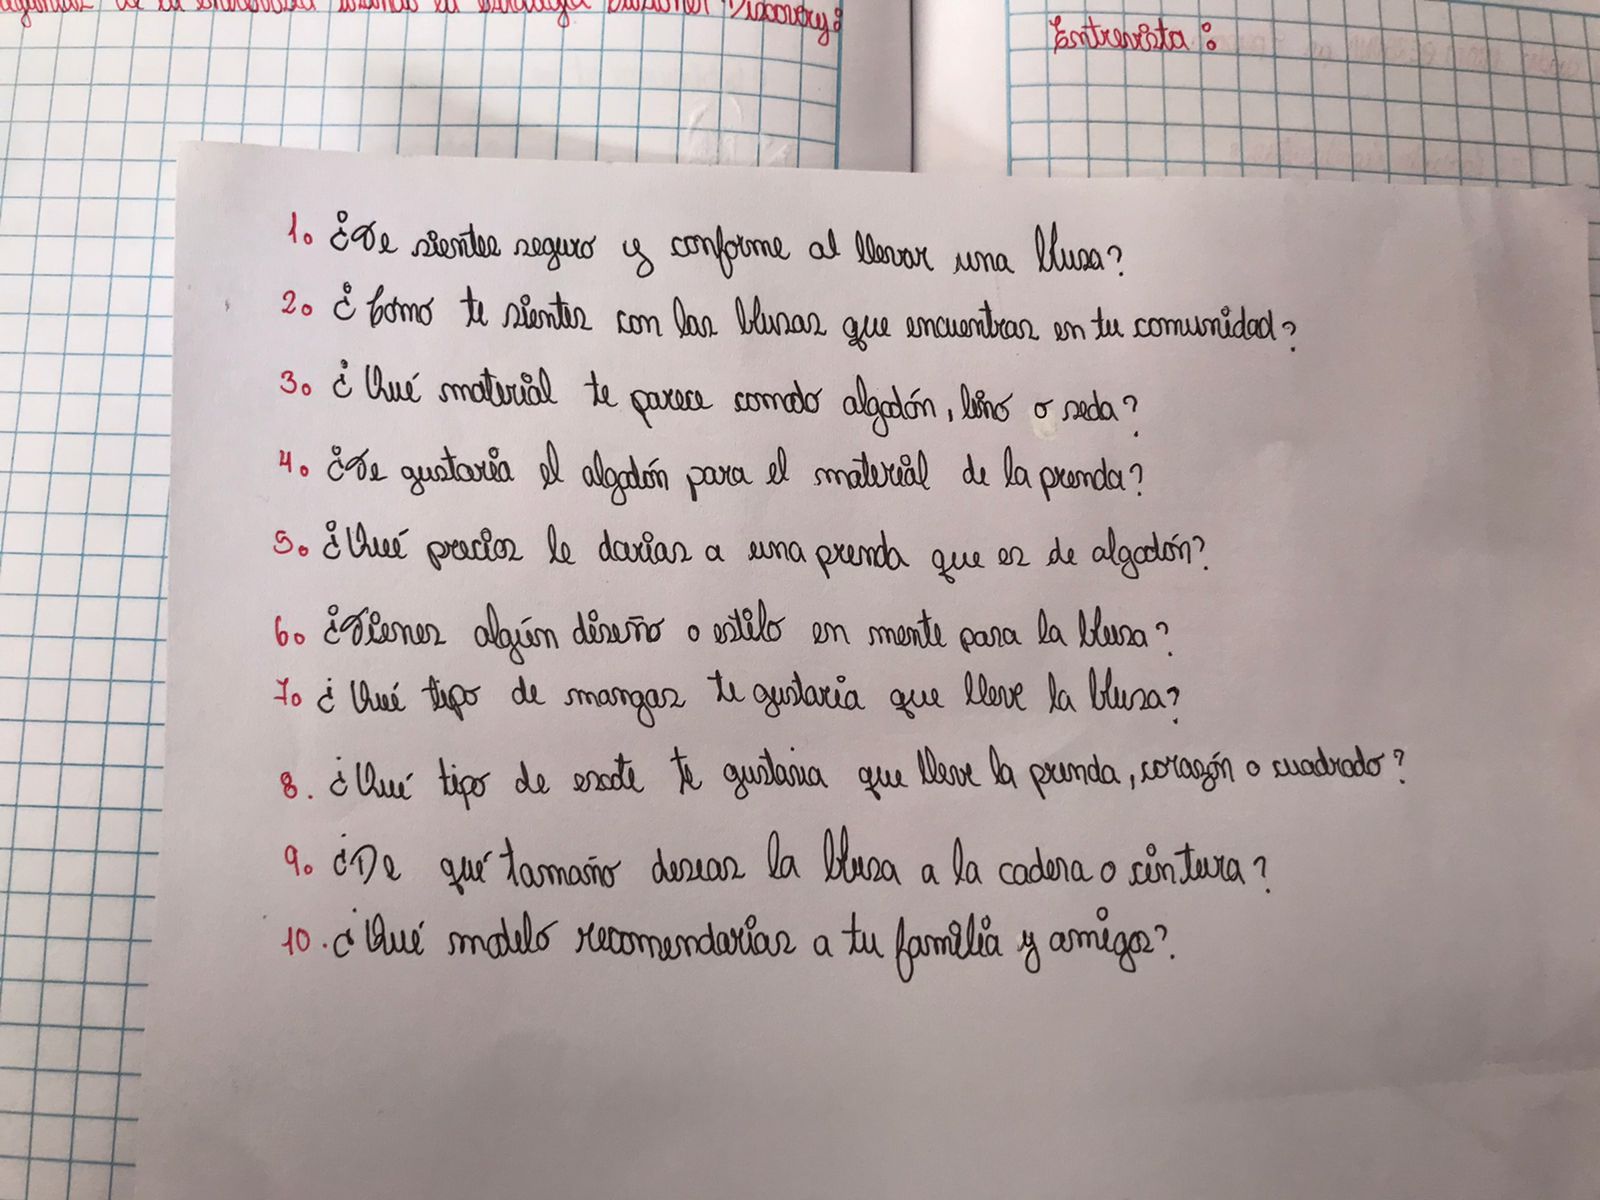 de la entrevista usando la estrategia Discovery:
Entrevista:
1. ¿Te sientes seguro y conforme al llevar una blusa?
2. ¿Como te sientes con las blusas que encuentras en tu comunidad?
3. ¿Qué material te parece comodo algodón, lino o seda?
4. ¿Te gustaria el algodón para el material de la prenda?
5. ¿Qué precios le darias a una prenda que es de algodón?
6. ¿Tienes algún diseño o estilo en mente para la blusa?
7. ¿Qué tipo de mangas te gustaria que lleve la blusa?
8. ¿Qué tipo de escote te gustaria que lleve la prenda, corazón o cuadrado?
9. ¿De qué tamaño deseas la blusa a la cadera o cintura?
10. ¿Qué modelo recomendarias a tu familia y amigos?